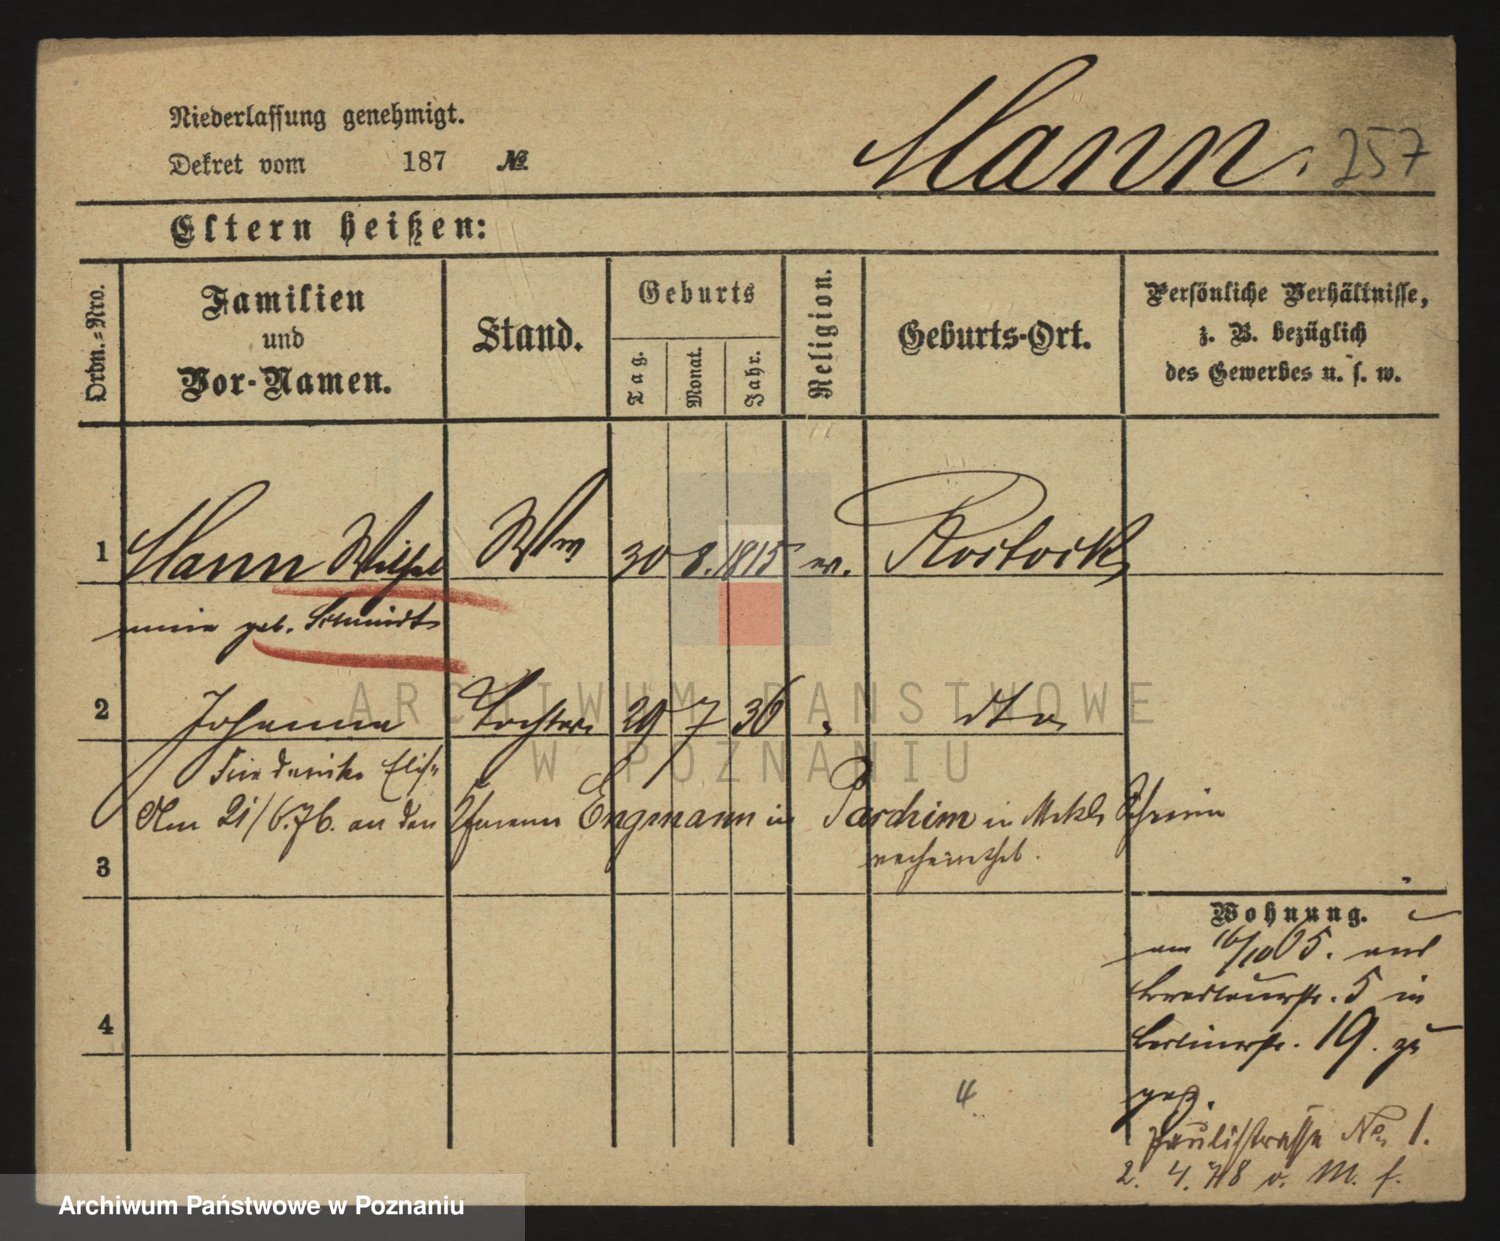 Niederlassung genehmigt.
Dekret vom 187 №
Mann. 257
Eltern heißen:
Ordn.-Nro.
Familien
und
Vor-Namen.
Stand.
Geburts
Tag.
Monat.
Jahr.
Religion.
Geburts-Ort.
Persönliche Verhältnisse,
z. B. bezüglich
des Gewerbes u. s. w.
1 Mann Wilhel Ww 30 8. 1815 ev. Rostock
mine geb. Schmidt
2 Johanna Tochter 29 7 36 " dto
Friederike Elis"
Am 21/6.76. an den Engmann in Parchim in Mekl. Schwerin
3 verheirathet.
Wohnung.
am 16/10 65. aus
Breslauerstr. 5 in
4 Berlinerstr. 19. zu
gez.
Paulistrasse No 1.
2. 4. 78 v. M. f.
4
ARCHIWUM PAŃSTWOWE
W POZNANIU
Archiwum Państwowe w Poznaniu